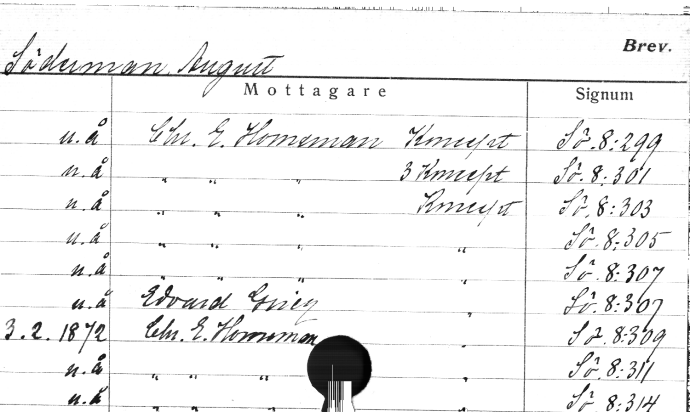 Brev.
Söderman, August
Mottagare Signum
u.å Chr. E. Horneman Koncept Sö. 8:299
u.å " " " 3 Koncept Sö. 8:301
u.å " " " Koncept Sö. 8:303
u.å " " " " Sö. 8:305
u.å " " " " Sö. 8:307
u.å Edvard Grieg " Sö. 8:307
3.2.1872 Chr. E. Horneman " Sö. 8:309
u.å " " " " Sö. 8:311
u.å " " " " Sö. 8:314